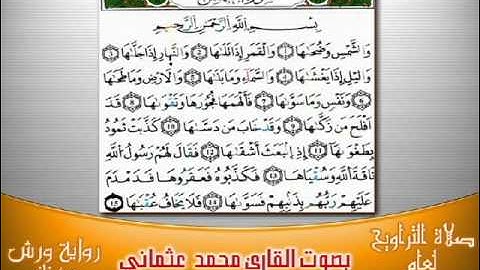 بِسْمِ اللَّهِ الرَّحْمَٰنِ الرَّحِيمِ
وَالشَّمْسِ وَضُحَىٰهَا ① وَالْقَمَرِ إِذَا تَلَىٰهَا ② وَالنَّهَارِ إِذَا جَلَّىٰهَا ③
وَالَّيْلِ إِذَا يَغْشَىٰهَا ④ وَالسَّمَآءِ وَمَا بَنَىٰهَا ⑤ وَالْأَرْضِ وَمَا طَحَىٰهَا
⑥ وَنَفْسٍ وَمَا سَوَّىٰهَا ⑦ فَأَلْهَمَهَا فُجُورَهَا وَتَقْوَىٰهَا ⑧ قَدْ
أَفْلَحَ مَن زَكَّىٰهَا ⑨ وَقَدْ خَابَ مَن دَسَّىٰهَا ⑩ كَذَّبَتْ ثَمُودُ
بِطَغْوَىٰهَا ⑪ إِذِ انۢبَعَثَ أَشْقَىٰهَا ⑫ فَقَالَ لَهُمْ رَسُولُ اللَّهِ
نَاقَةَ اللَّهِ وَسُقْيَٰهَا ⑬ فَكَذَّبُوهُ فَعَقَرُوهَا فَدَمْدَمَ
عَلَيْهِمْ رَبُّهُم بِذَنۢبِهِمْ فَسَوَّىٰهَا ⑭ فَلَا يَخَافُ عُقْبَٰهَا ⑮
صلاة التراويح
لعام
رواية ورش
بصوت القارئ محمد عثماني